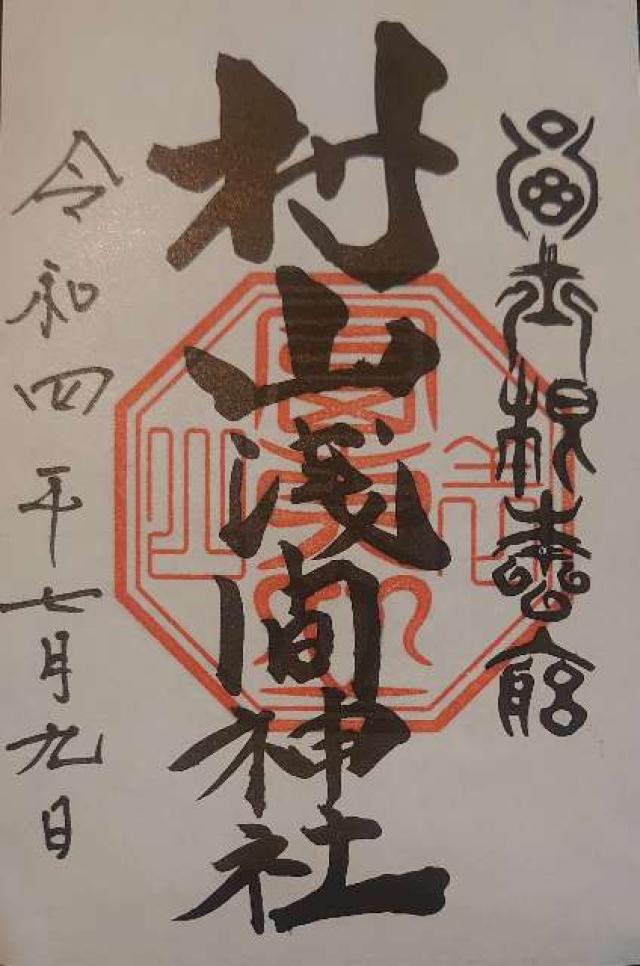 富士根本宮
村山浅間神社
令和四年七月九日